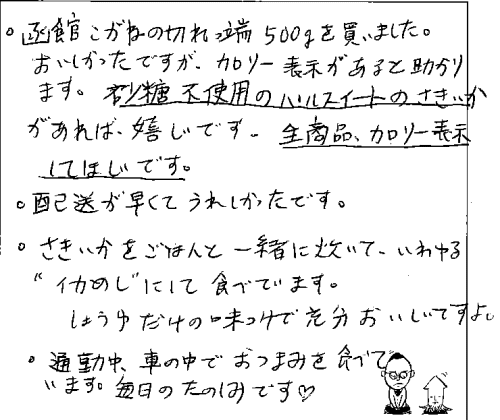 ○ 函館こがねの切れっ端 500gを買いました。
おいしかったですが、カロリー表示があると助かり
ます。砂糖不使用のパルスイートのさきいか
があれば、嬉しいです。全商品、カロリー表示
してほしいです。
○ 配送が早くてうれしかったです。
○ さきいかをごはんと一緒に炊いて、いわゆる
“イカめし”にして食べています。
しょうゆだけの味つけで充分おいしいですよ。
○ 通勤中、車の中でおつまみを食べて
います。毎日のたのしみです♡